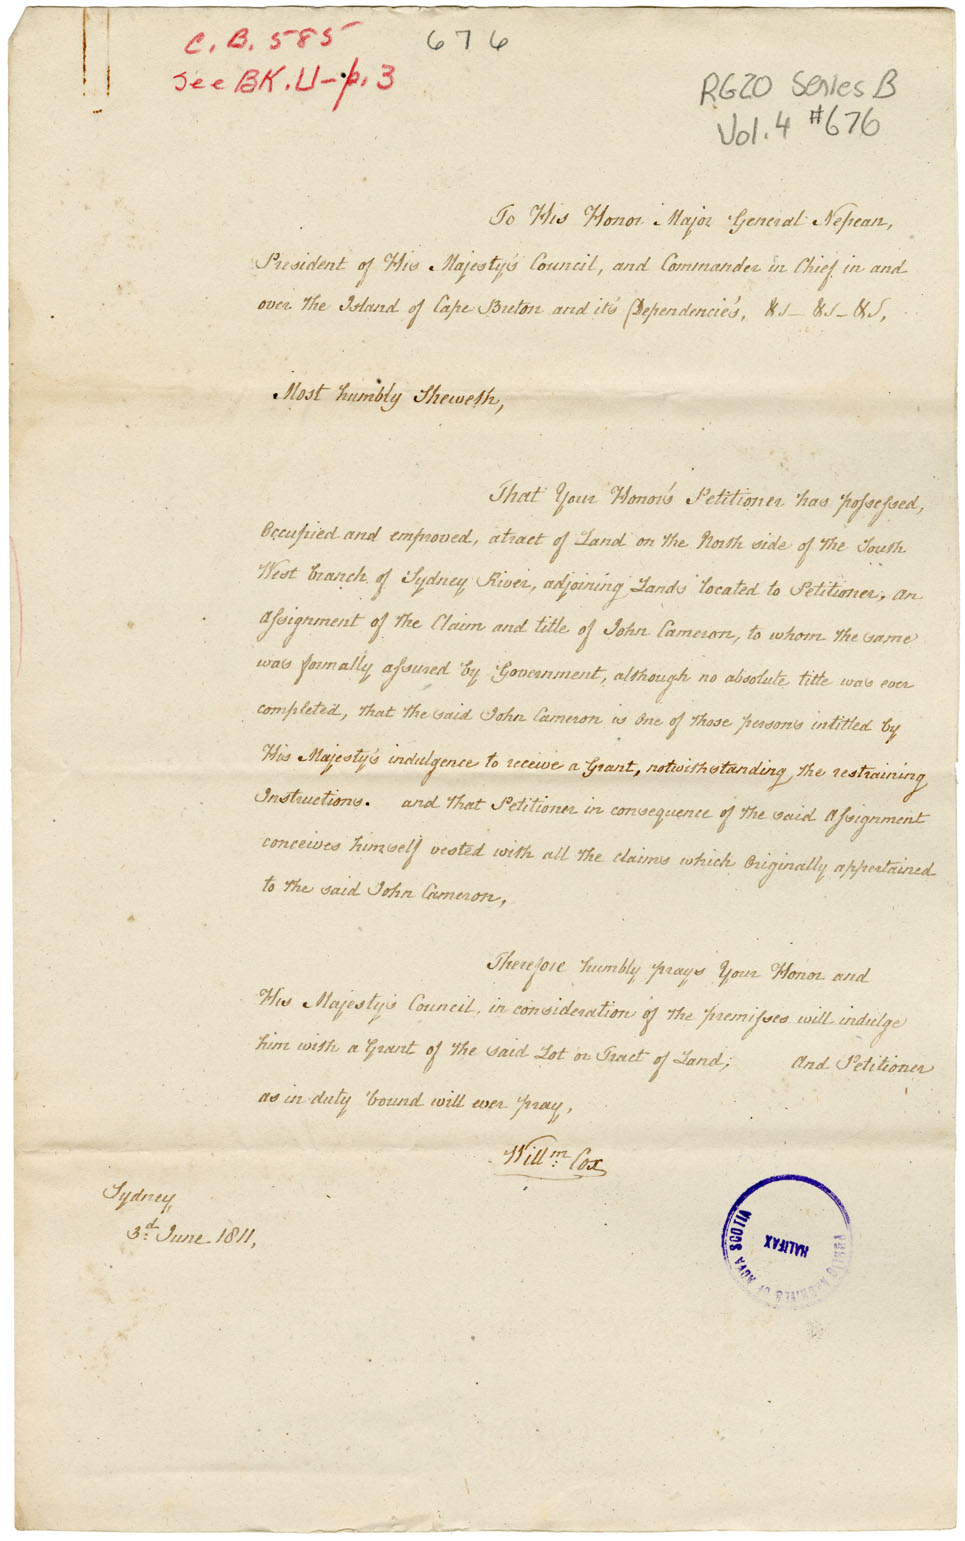 C. B. 585
676
See BK. U - p. 3
RG20 Series B
Vol. 4 #676
To His Honor Major General Nepean,
President of His Majesty's Council, and Commander in Chief in and
over the Island of Cape Breton and it's Dependencie's, &c - &c - &c,
Most humbly Sheweth,
That Your Honor's Petitioner has possessed,
Occupied and emproved, a tract of Land on the North side of the South
West branch of Sydney River, adjoining Lands located to Petitioner, An
Assignment of the Claim and title of John Cameron, to whom the same
was formally assured by Government, although no absolute title was ever
completed, that the said John Cameron is one of those persons intitled by
His Majesty's indulgence to receive a Grant, notwithstanding the restraining
Instructions. and that Petitioner in consequence of the said Assignment
conceives himself vested with all the claims which Originally appertained
to the said John Cameron,
Therefore humbly prays Your Honor and
His Majesty's Council, in consideration of the premisses will indulge
him with a Grant of the said Lot or Tract of Land; And Petitioner
as in duty bound will ever pray,
Willm: Cox
Sydney
3d June 1811,
PUBLIC ARCHIVES OF NOVA SCOTIA
HALIFAX